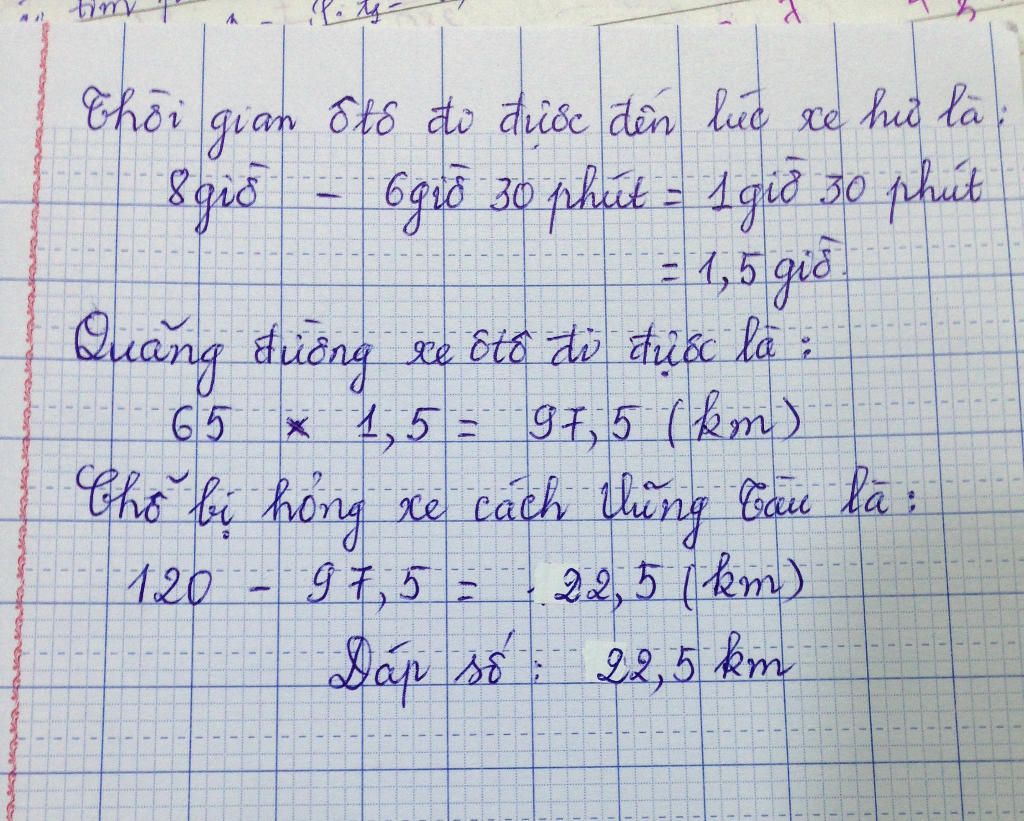 Thời gian ôtô đi được đến lúc xe hư là:
8giờ - 6giờ 30 phút = 1giờ 30 phút
= 1,5 giờ
Quãng đường xe ôtô đi được là:
65 x 1,5 = 97,5 (km)
Chỗ bị hỏng xe cách Vũng Tàu là:
120 - 97,5 = 22,5 (km)
Đáp số: 22,5 km